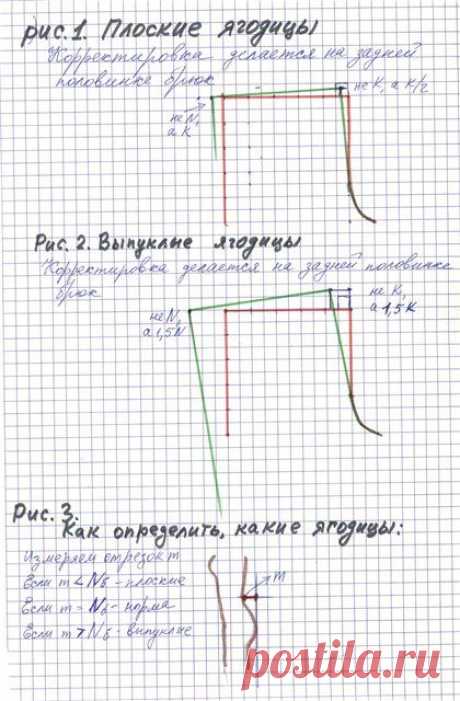 рис.1. Плоские ягодицы
Корректировка делается на задней
половинке брюк
не К, а К/2
не N,
а К
Рис. 2. Выпуклые ягодицы
Корректировка делается на задней половинке
брюк
не N,
а 1,5 N
не К,
а 1,5 К
Рис. 3.
Как определить, какие ягодицы:
Измеряем отрезок m
Если m < Nб - плоские
Если m = Nб - норма
Если m > Nб - выпуклые
m
postila.ru